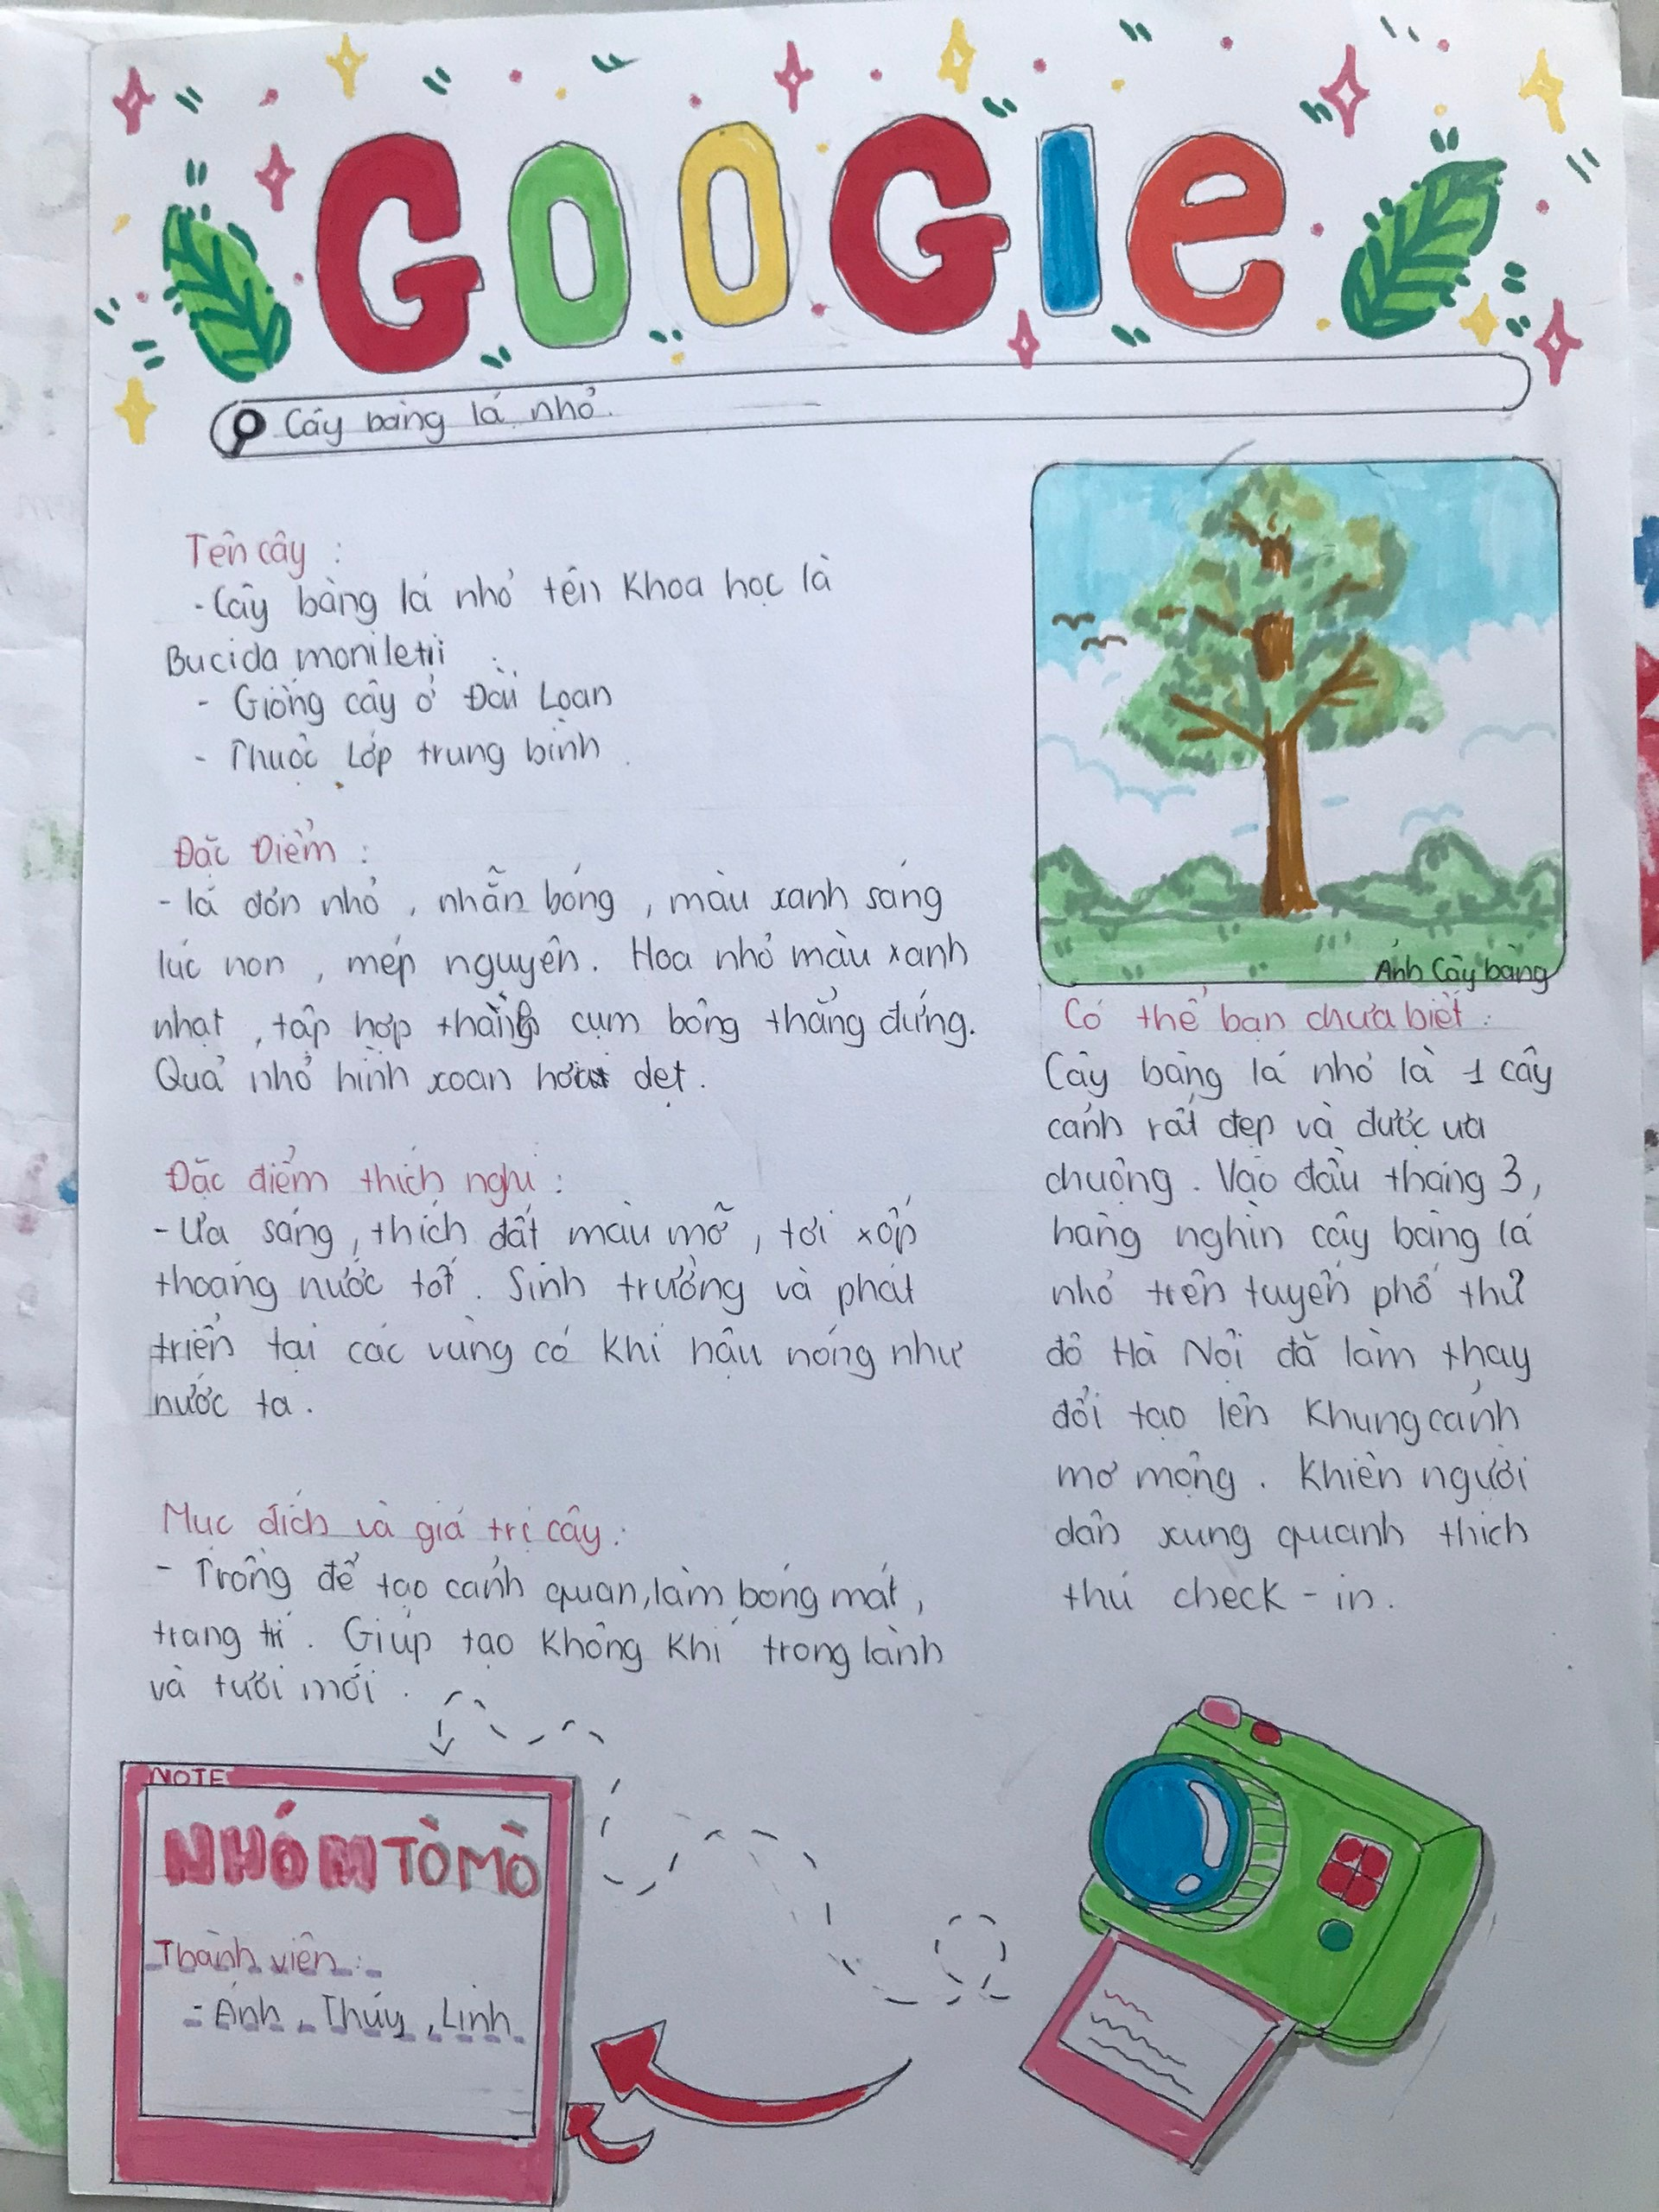 GOOGle
Cây bàng lá nhỏ.
Tên cây :
- Cây bàng lá nhỏ tên khoa học là
Bucida moniletii
- Giống cây ở Đài Loan
- Thuộc lớp trung bình
Đặc Điểm :
- lá đơn nhỏ , nhẵn bóng , màu xanh sáng
lúc non , mép nguyên . Hoa nhỏ màu xanh
nhạt , tập hợp thành cụm bông thẳng đứng.
Quả nhỏ hình xoan hơi dẹt .
Đặc điểm thích nghi :
- Ưa sáng , thích đất màu mỡ , tơi xốp
thoáng nước tốt . Sinh trưởng và phát
triển tại các vùng có khí hậu nóng như
nước ta .
Mục đích và giá trị cây :
- Trồng để tạo cảnh quan, làm bóng mát ,
trang trí . Giúp tạo không khí trong lành
và tươi mới .
Ảnh cây bàng
Có thể bạn chưa biết :
Cây bàng lá nhỏ là 1 cây
cảnh rất đẹp và được ưa
chuộng . Vào đầu tháng 3,
hàng nghìn cây bàng lá
nhỏ trên tuyến phố thủ
đô Hà Nội đã làm thay
đổi tạo lên khung cảnh
mơ mộng . Khiến người
dân xung quanh thích
thú check - in .
NOTE
NHÓM TÒ MÒ
Thành viên :
- Ánh , Thúy , Linh